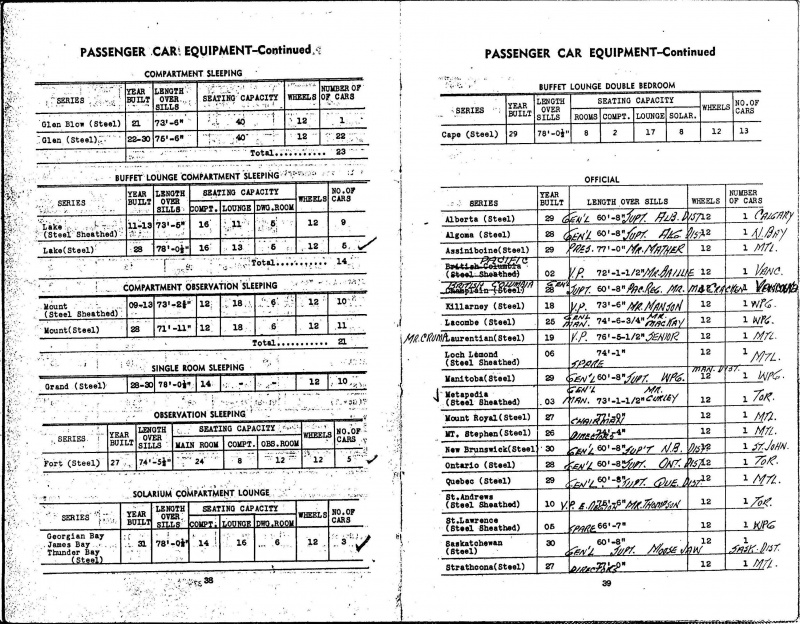 PASSENGER CAR EQUIPMENT—Continued
COMPARTMENT SLEEPING
SERIES YEAR BUILT LENGTH OVER SILLS SEATING CAPACITY WHEELS NUMBER OF CARS
Glen Blow (Steel) 21 73'-6" 40 12 1
Glen (Steel) 22-30 75'-6" 40 12 22
Total........... 23
BUFFET LOUNGE COMPARTMENT SLEEPING
SERIES YEAR BUILT LENGTH OVER SILLS SEATING CAPACITY COMPT. LOUNGE DWG.ROOM WHEELS NO.OF CARS
Lake (Steel Sheathed) 11-13 73'-5" 16 11 5 12 9
Lake(Steel) 28 78'-0½" 16 13 5 12 5 ✓
Total........... 14
COMPARTMENT OBSERVATION SLEEPING
Mount (Steel Sheathed) 09-13 73'-2½" 12 18 6 12 10
Mount(Steel) 28 71'-11" 12 18 6 12 11
Total........... 21
SINGLE ROOM SLEEPING
Grand (Steel) 28-30 78'-0½" 14 - - 12 10
OBSERVATION SLEEPING
SERIES YEAR BUILT LENGTH OVER SILLS SEATING CAPACITY MAIN ROOM COMPT. OBS.ROOM WHEELS NO.OF CARS
Fort (Steel) 27 74'-5½" 24 8 12 12 5 ✓
SOLARIUM COMPARTMENT LOUNGE
SERIES YEAR BUILT LENGTH OVER SILLS SEATING CAPACITY COMPT. LOUNGE DWG.ROOM WHEELS NO.OF CARS
Georgian Bay
James Bay 31 78'-0½" 14 16 6 12 3 ✓
Thunder Bay
(Steel)
38
PASSENGER CAR EQUIPMENT—Continued
BUFFET LOUNGE DOUBLE BEDROOM
SERIES YEAR BUILT LENGTH OVER SILLS SEATING CAPACITY ROOMS COMPT. LOUNGE SOLAR. WHEELS NO.OF CARS
Cape (Steel) 29 78'-0½" 8 2 17 8 12 13
OFFICIAL
SERIES YEAR BUILT LENGTH OVER SILLS WHEELS NUMBER OF CARS
Alberta (Steel) 29 GEN'L 60'-8" SUPT. ALB. DIST 12 1 CALGARY
Algoma (Steel) 28 GEN'L 60'-8" SUPT. ALG DIST 12 1 N. BAY
Assiniboine(Steel) 29 PRES. 77'-0" MR. MATHER 12 1 MTL.
PACIFIC
British Columbia (Steel Sheathed) 02 V.P. 72'-1-1/2" MR. BAILLIE 12 1 VANC.
BRITISH COLUMBIA GEN'L
Champlain (Steel) 28 SUPT. 60'-8" PAC REG. MR. 12 1 VANCOUVER
Killarney (Steel) 18 V.P. 73'-6" MR. MANSON 12 1 WPG.
Lacombe (Steel) 25 GEN'L MAN. 74'-6-3/4" MR. MACKAY 12 1 WPG.
MR. CRUMP Laurentian(Steel) 19 V.P. 76'-5-1/2" SENIOR 12 1 MTL.
Loch Lomond (Steel Sheathed) 06 74'-1" SPARE 12 1 MTL.
Manitoba(Steel) 29 GEN'L 60'-8" SUPT. WPG. MAN. DIST. 12 1 WPG.
✓ Metapedia (Steel Sheathed) 03 GEN'L MAN. 73'-1-1/2" MR. CURLEY 12 1 TOR.
Mount Royal(Steel) 27 CHAIRMAN 12 1 MTL.
MT. Stephen(Steel) 26 DIRECTORS 12 1 MTL.
New Brunswick(Steel) 30 GEN'L 60'-8" SUP'T N.B. DIST 12 1 ST. JOHN.
Ontario (Steel) 28 GEN'L 60'-8" SUPT. ONT. DIST 12 1 TOR.
Quebec (Steel) 29 GEN'L 60'-8" SUPT. QUE. DIST 12 1 MTL.
St.Andrews (Steel Sheathed) 10 V.P. MR. THOMPSON 12 1 TOR.
St.Lawrence (Steel Sheathed) 05 SPARE 66'-7" 12 1 WPG
Saskatchewan (Steel) 30 60'-8" GEN'L SUPT MOOSE JAW 12 1 SASK. DIST.
Strathcona(Steel) 27 DIRECTORS 12 1 MTL.
39